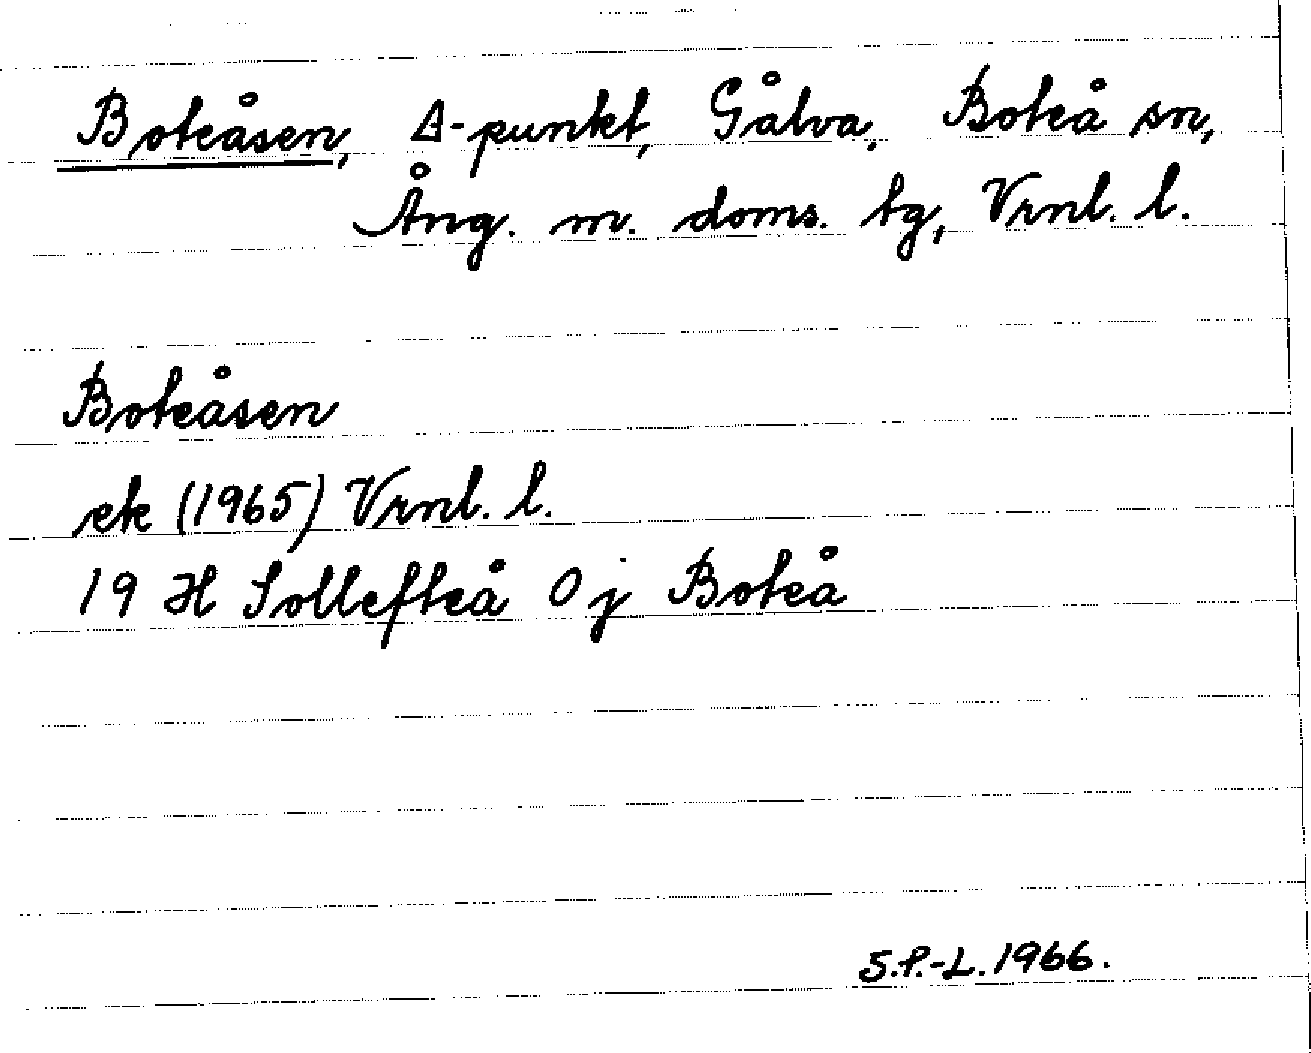 Boteåsen, Δ-punkt, Gålva, Boteå sn,
Ång. m. doms. tg, Vrnl. l.
Boteåsen
ek (1965) Vrnl. l.
19 H Sollefteå 0 j Boteå
S.P.-L. 1966.